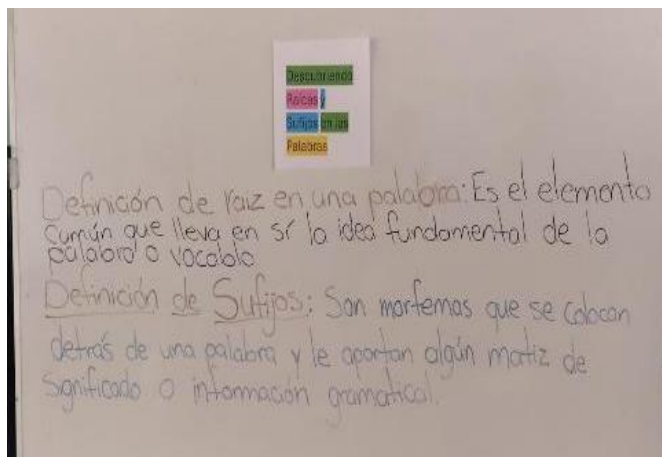 Descubriendo
Raíces y
Sufijos en las
Palabras
Definición de raiz en una palabra: Es el elemento
común que lleva en sí la idea fundamental de la
palabra o vocablo
Definición de Sufijos: Son morfemas que se colocan
detrás de una palabra y le aportan algún matiz de
significado o información gramatical.